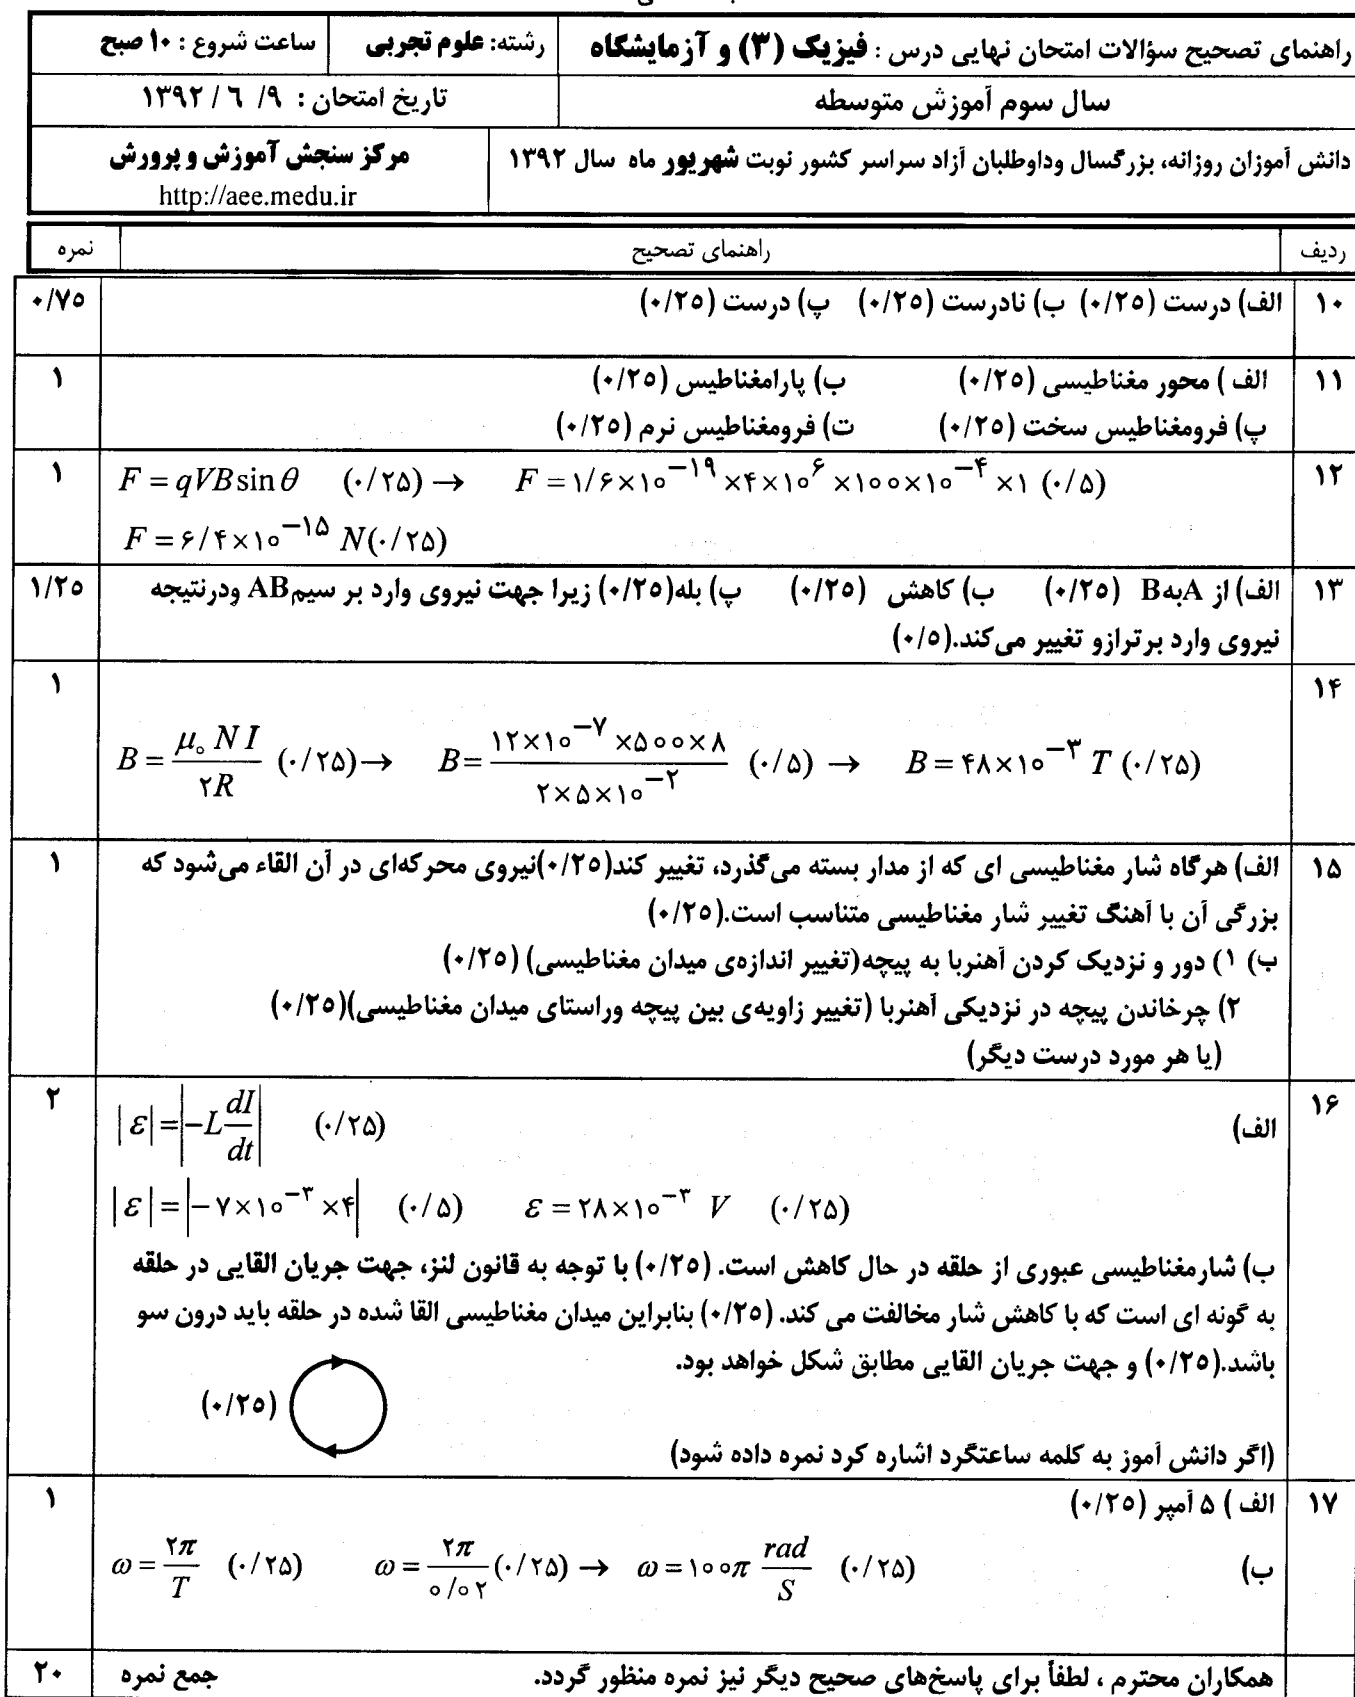 راهنمای تصحیح سؤالات امتحان نهایی درس : فیزیک (۳) و آزمایشگاه رشته: علوم تجربی ساعت شروع : ۱۰ صبح
سال سوم آموزش متوسطه تاریخ امتحان : ۹/ ۶ / ۱۳۹۲
دانش آموزان روزانه، بزرگسال وداوطلبان آزاد سراسر کشور نوبت شهریور ماه سال ۱۳۹۲ مرکز سنجش آموزش و پرورش
http://aee.medu.ir
ردیف راهنمای تصحیح نمره
۱۰ الف) درست (۰/۲۵) ب) نادرست (۰/۲۵) پ) درست (۰/۲۵) ۰/۷۵
۱۱ الف ) محور مغناطیسی (۰/۲۵) ب) پارامغناطیس (۰/۲۵) ۱
پ) فرومغناطیس سخت (۰/۲۵) ت) فرومغناطیس نرم (۰/۲۵)
۱۲ F = qVB sin θ (۰/۲۵) → F = ۱/۶×۱۰^{−۱۹} ×۴×۱۰^{۶} ×۱۰۰×۱۰^{−۴} ×۱ (۰/۵) ۱
F = ۶/۴×۱۰^{−۱۵} N(۰/۲۵)
۱۳ الف) از A به B (۰/۲۵) ب) کاهش (۰/۲۵) پ) بله(۰/۲۵) زیرا جهت نیروی وارد بر سیم AB ودرنتیجه ۱/۲۵
نیروی وارد برترازو تغییر می‌کند.(۰/۵)
۱۴ ۱
B = \frac{μ_۰ N I}{۲R} (۰/۲۵) → B = \frac{۱۲×۱۰^{−۷} ×۵۰۰×۸}{۲×۵×۱۰^{−۲}} (۰/۵) → B = ۴۸×۱۰^{−۳} T (۰/۲۵)
۱۵ الف) هرگاه شار مغناطیسی ای که از مدار بسته می‌گذرد، تغییر کند(۰/۲۵)نیروی محرکه‌ای در آن القاء می‌شود که ۱
بزرگی آن با آهنگ تغییر شار مغناطیسی متناسب است.(۰/۲۵)
ب) ۱) دور و نزدیک کردن آهنربا به پیچه(تغییر اندازه‌ی میدان مغناطیسی) (۰/۲۵)
۲) چرخاندن پیچه در نزدیکی آهنربا (تغییر زاویه‌ی بین پیچه وراستای میدان مغناطیسی)(۰/۲۵)
(یا هر مورد درست دیگر)
۱۶ الف) |ε| = |−L \frac{dI}{dt}| (۰/۲۵) ۲
|ε| = |−۷×۱۰^{−۳} ×۴| (۰/۵) ε = ۲۸×۱۰^{−۳} V (۰/۲۵)
ب) شارمغناطیسی عبوری از حلقه در حال کاهش است. (۰/۲۵) با توجه به قانون لنز، جهت جریان القایی در حلقه
به گونه ای است که با کاهش شار مخالفت می کند. (۰/۲۵) بنابراین میدان مغناطیسی القا شده در حلقه باید درون سو
باشد.(۰/۲۵) و جهت جریان القایی مطابق شکل خواهد بود.
(۰/۲۵)
(اگر دانش آموز به کلمه ساعتگرد اشاره کرد نمره داده شود)
۱۷ الف ) ۵ آمپر (۰/۲۵) ۱
ب) ω = \frac{۲π}{T} (۰/۲۵) ω = \frac{۲π}{۰/۰۲} (۰/۲۵) → ω = ۱۰۰π \frac{rad}{S} (۰/۲۵)
همکاران محترم ، لطفاً برای پاسخ‌های صحیح دیگر نیز نمره منظور گردد. جمع نمره ۲۰